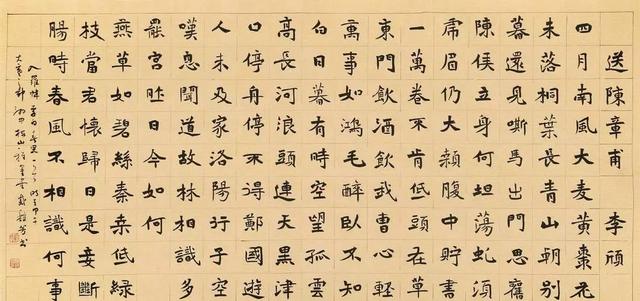 送陳章甫 李頎
四月南風大麥黃棗花
未落桐葉長青山朝別
暮還見嘶馬出門思舊
陳侯立身何坦蕩虬須
虎眉仍大顙腹中貯書
一萬卷不肯低頭在草
東門飲酒飲我曹心輕
萬事如鴻毛醉臥不知
白日暮有時空望孤雲
高長河浪頭連天黑津
口停舟停不得鄭國遊
人未及家洛陽行子空
嘆息聞道故林相識多
罷官昨日今如何
燕草如碧絲秦桑低綠
枝當君懷歸日是妾斷
腸時春風不相識何事
入羅幃 李白春思